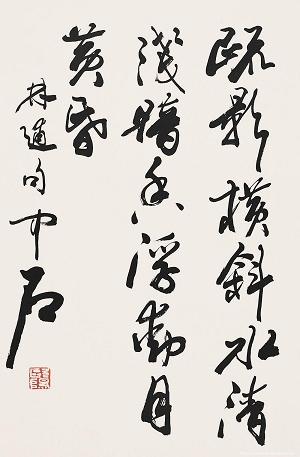 疏影橫斜水清
淺暗香浮動月
黃昏
林逋句 中石